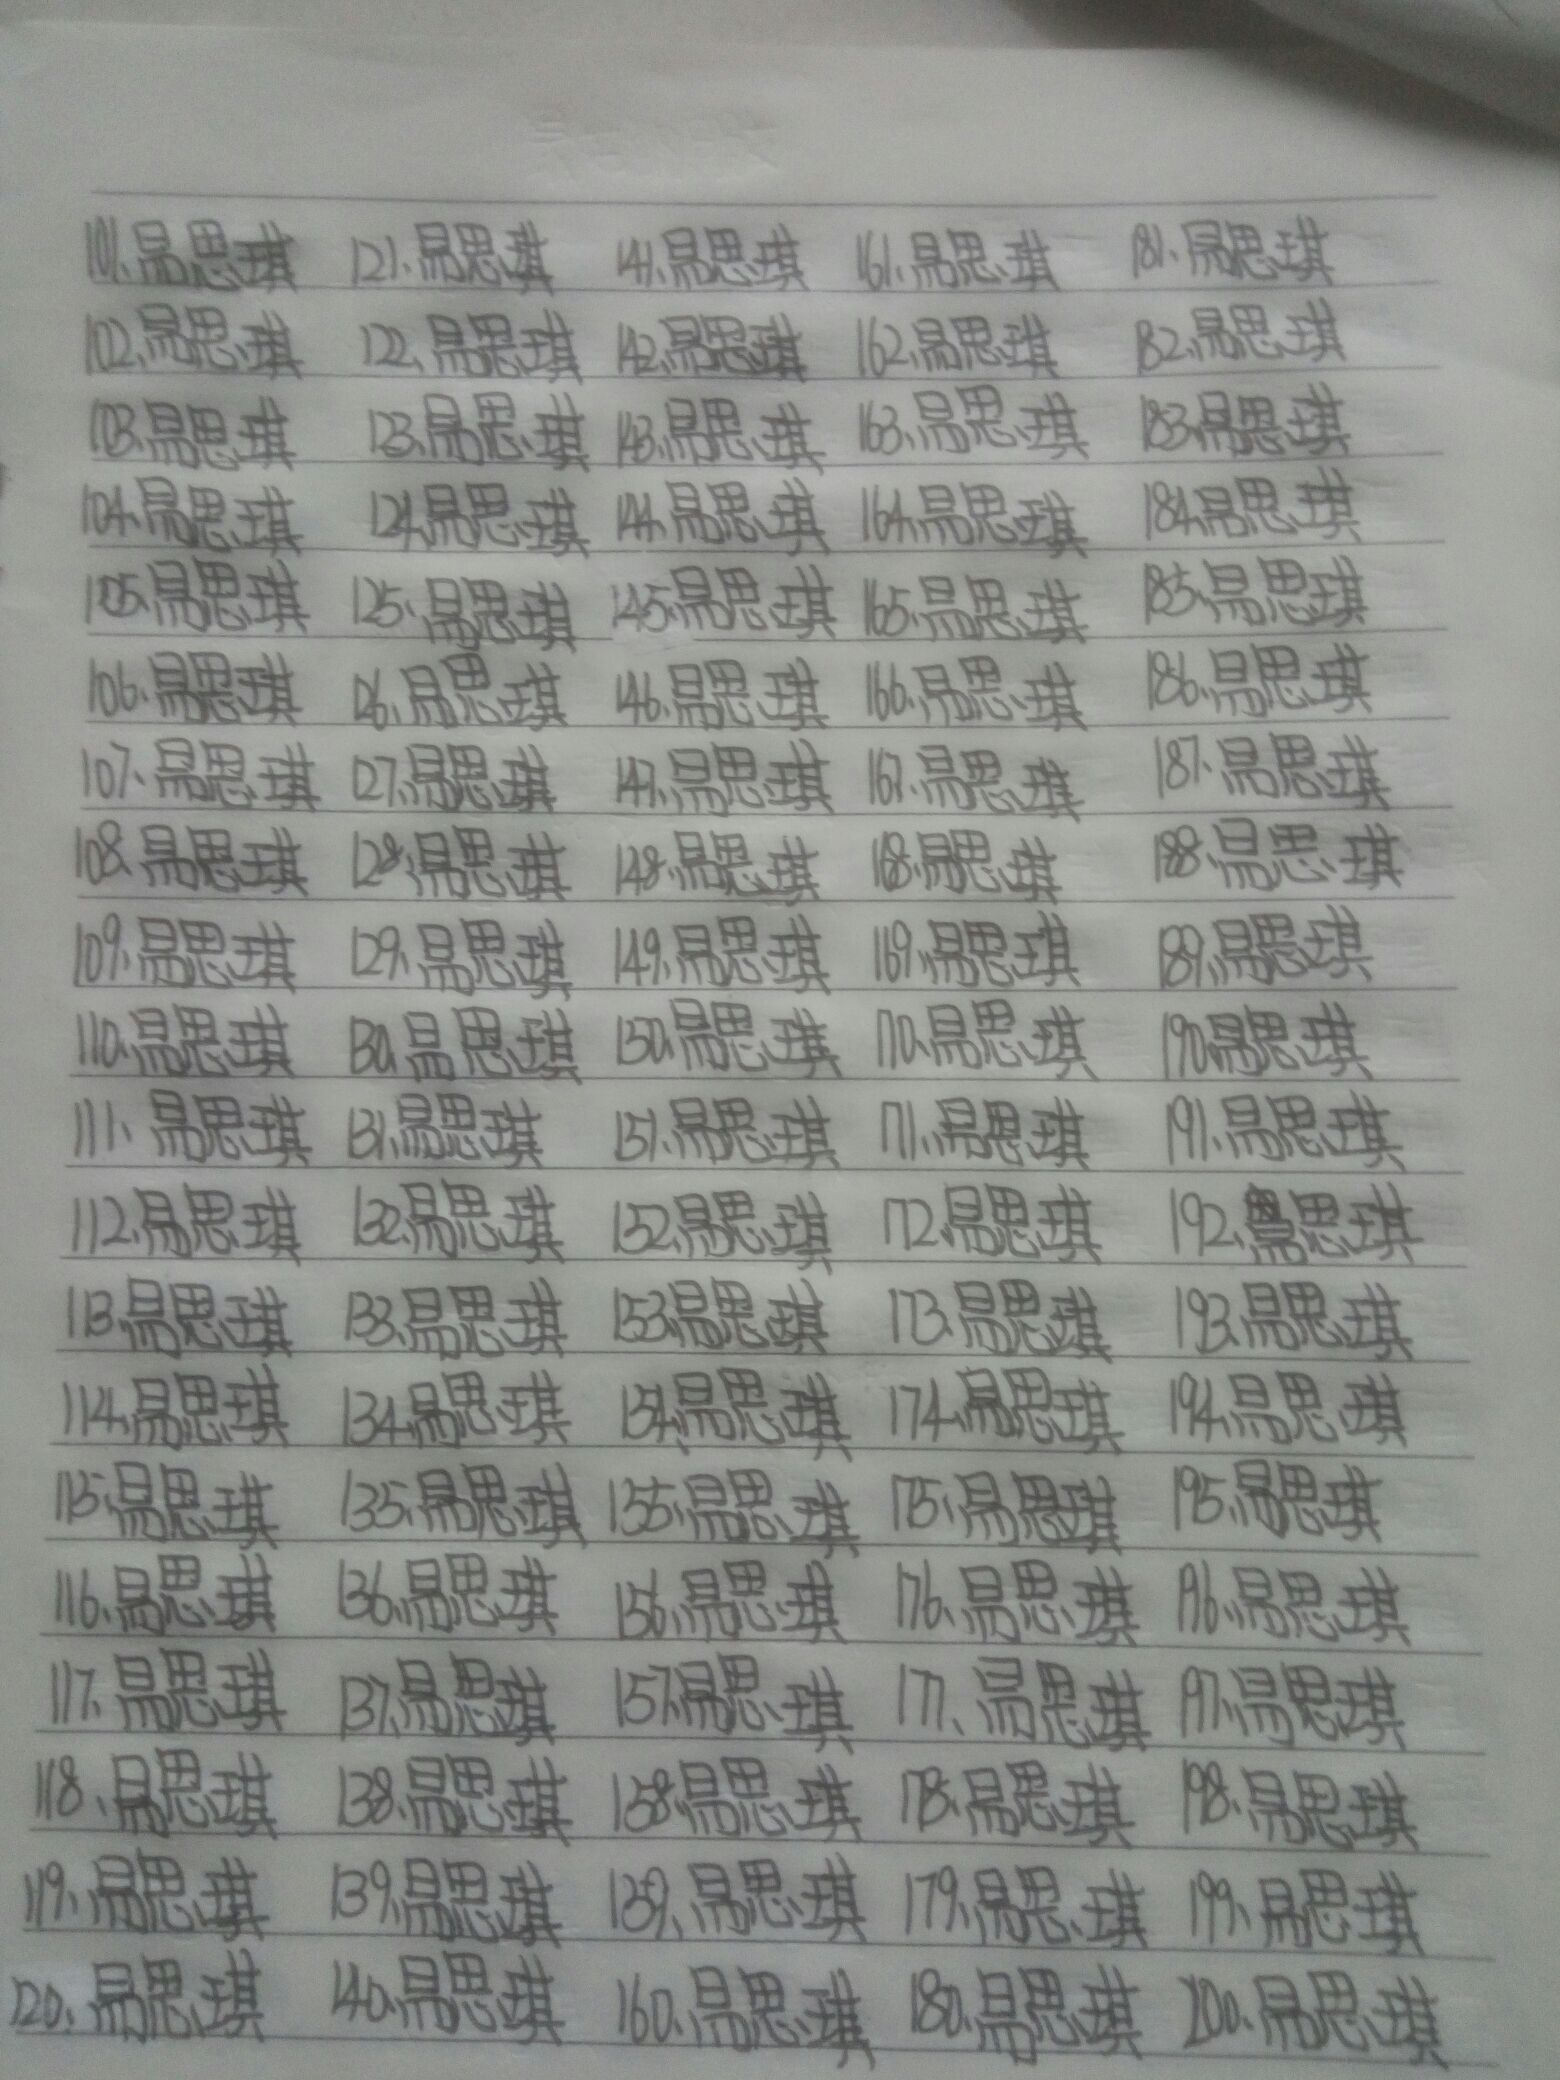 101、易思琪 121、易思琪 141、易思琪 161、易思琪 181、易思琪
102、易思琪 122、易思琪 142、易思琪 162、易思琪 182、易思琪
103、易思琪 123、易思琪 143、易思琪 163、易思琪 183、易思琪
104、易思琪 124、易思琪 144、易思琪 164、易思琪 184、易思琪
105、易思琪 125、易思琪 145、易思琪 165、易思琪 185、易思琪
106、易思琪 126、易思琪 146、易思琪 166、易思琪 186、易思琪
107、易思琪 127、易思琪 147、易思琪 167、易思琪 187、易思琪
108、易思琪 128、易思琪 148、易思琪 168、易思琪 188、易思琪
109、易思琪 129、易思琪 149、易思琪 169、易思琪 189、易思琪
110、易思琪 130、易思琪 150、易思琪 170、易思琪 190、易思琪
111、易思琪 131、易思琪 151、易思琪 171、易思琪 191、易思琪
112、易思琪 132、易思琪 152、易思琪 172、易思琪 192、易思琪
113、易思琪 133、易思琪 153、易思琪 173、易思琪 193、易思琪
114、易思琪 134、易思琪 154、易思琪 174、易思琪 194、易思琪
115、易思琪 135、易思琪 155、易思琪 175、易思琪 195、易思琪
116、易思琪 136、易思琪 156、易思琪 176、易思琪 196、易思琪
117、易思琪 137、易思琪 157、易思琪 177、易思琪 197、易思琪
118、易思琪 138、易思琪 158、易思琪 178、易思琪 198、易思琪
119、易思琪 139、易思琪 159、易思琪 179、易思琪 199、易思琪
120、易思琪 140、易思琪 160、易思琪 180、易思琪 200、易思琪